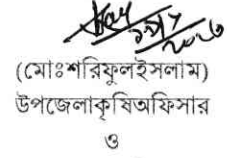 (মোঃশরিফুলইসলাম)
উপজেলাকৃষিঅফিসার
ও